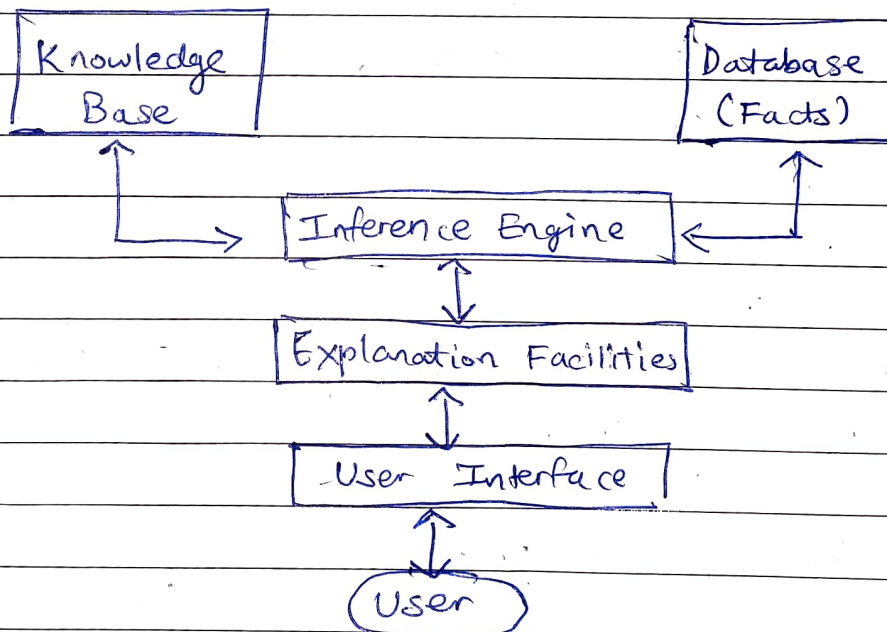 Knowledge
Base
Database
(Facts)
Inference Engine
Explanation Facilities
User Interface
User